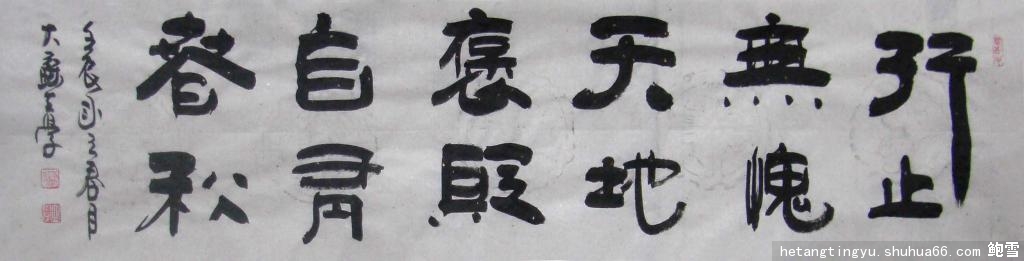 行止
無愧
天地
褒貶
自有
春秋
壬辰
hetangtingyu.shuhua66.com 鲍雪